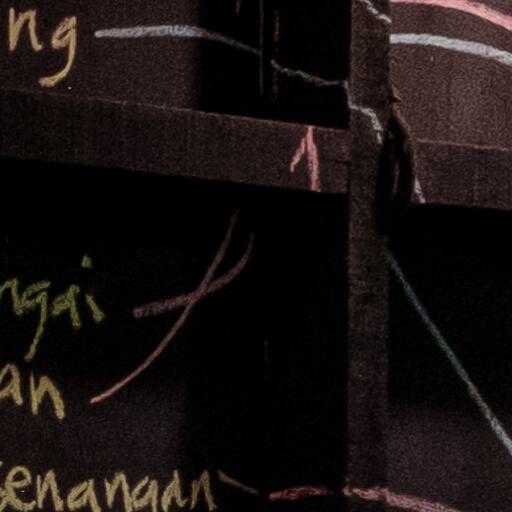 ng
ngai
an
senangan